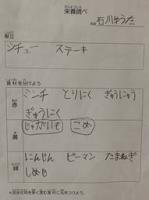 栄養調べ
名前 石川そうた
献立
シチュー ステーキ
食材を分けよう
赤 ミンチ とりにく ぎゅうにゅう
ぎゅうにく
黄 じゃがいも こめ
緑 にんじん ピーマン たまねぎ
しめじ